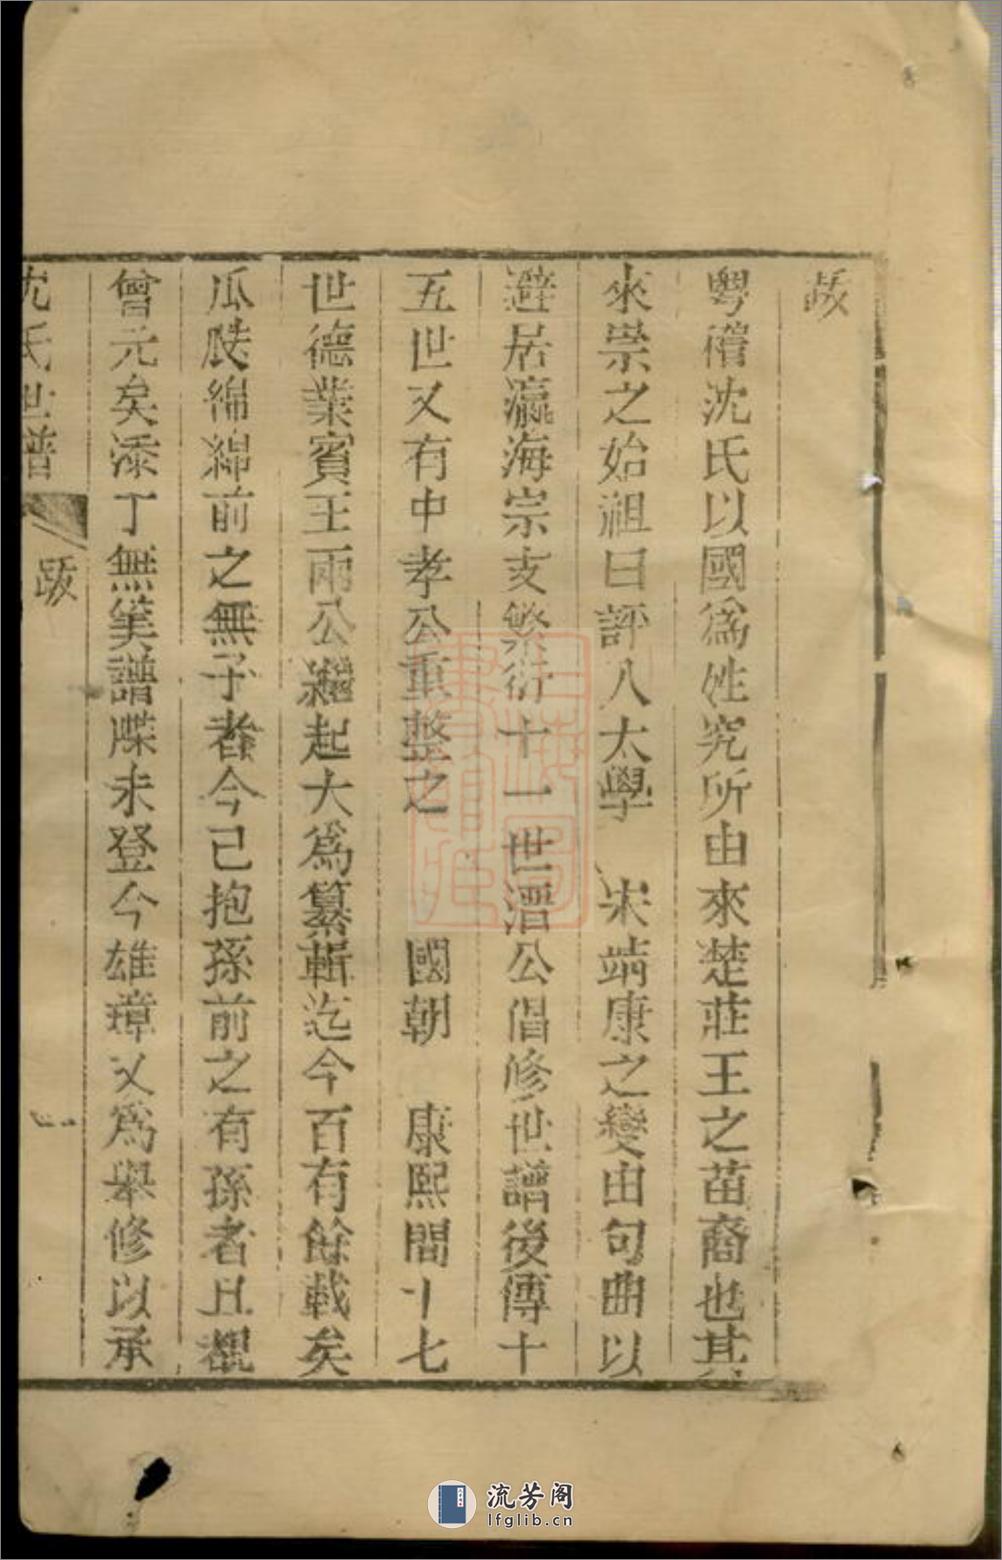 跋
粤稽沈氏以國爲姓究所由來楚莊王之苗裔也其
來崇之始祖曰評八太學 宋靖康之變由句曲以
遊居瀛海宗支繁衍十一世潛公倡修世譜後傳十
五世又有中孝公重整之 國朝 康熙間十七
世德業賓王兩公繼起大爲纂輯迄今百有餘載矣
瓜瓞綿綿前之無子者今已抱孫前之有孫者且覩
曾元矣添丁無筭譜牒未登今雄璋又爲舉修以承
沈氏世譜 跋 一
流芳阁
lfglib.cn